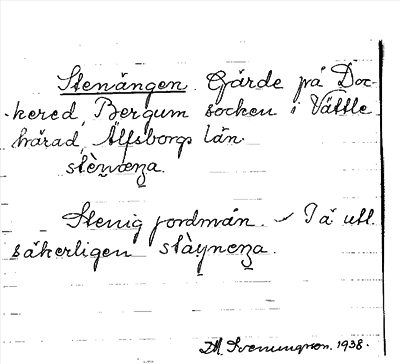 Stenängen. Gärde på Doc-
kered, Bergum socken i Vättle
härad, Älfsborgs län.
stènæŋa.
Stenig jordmån. – I ä utt.
säkerligen stàynæŋa.
D.A. Svenungson. 1938.